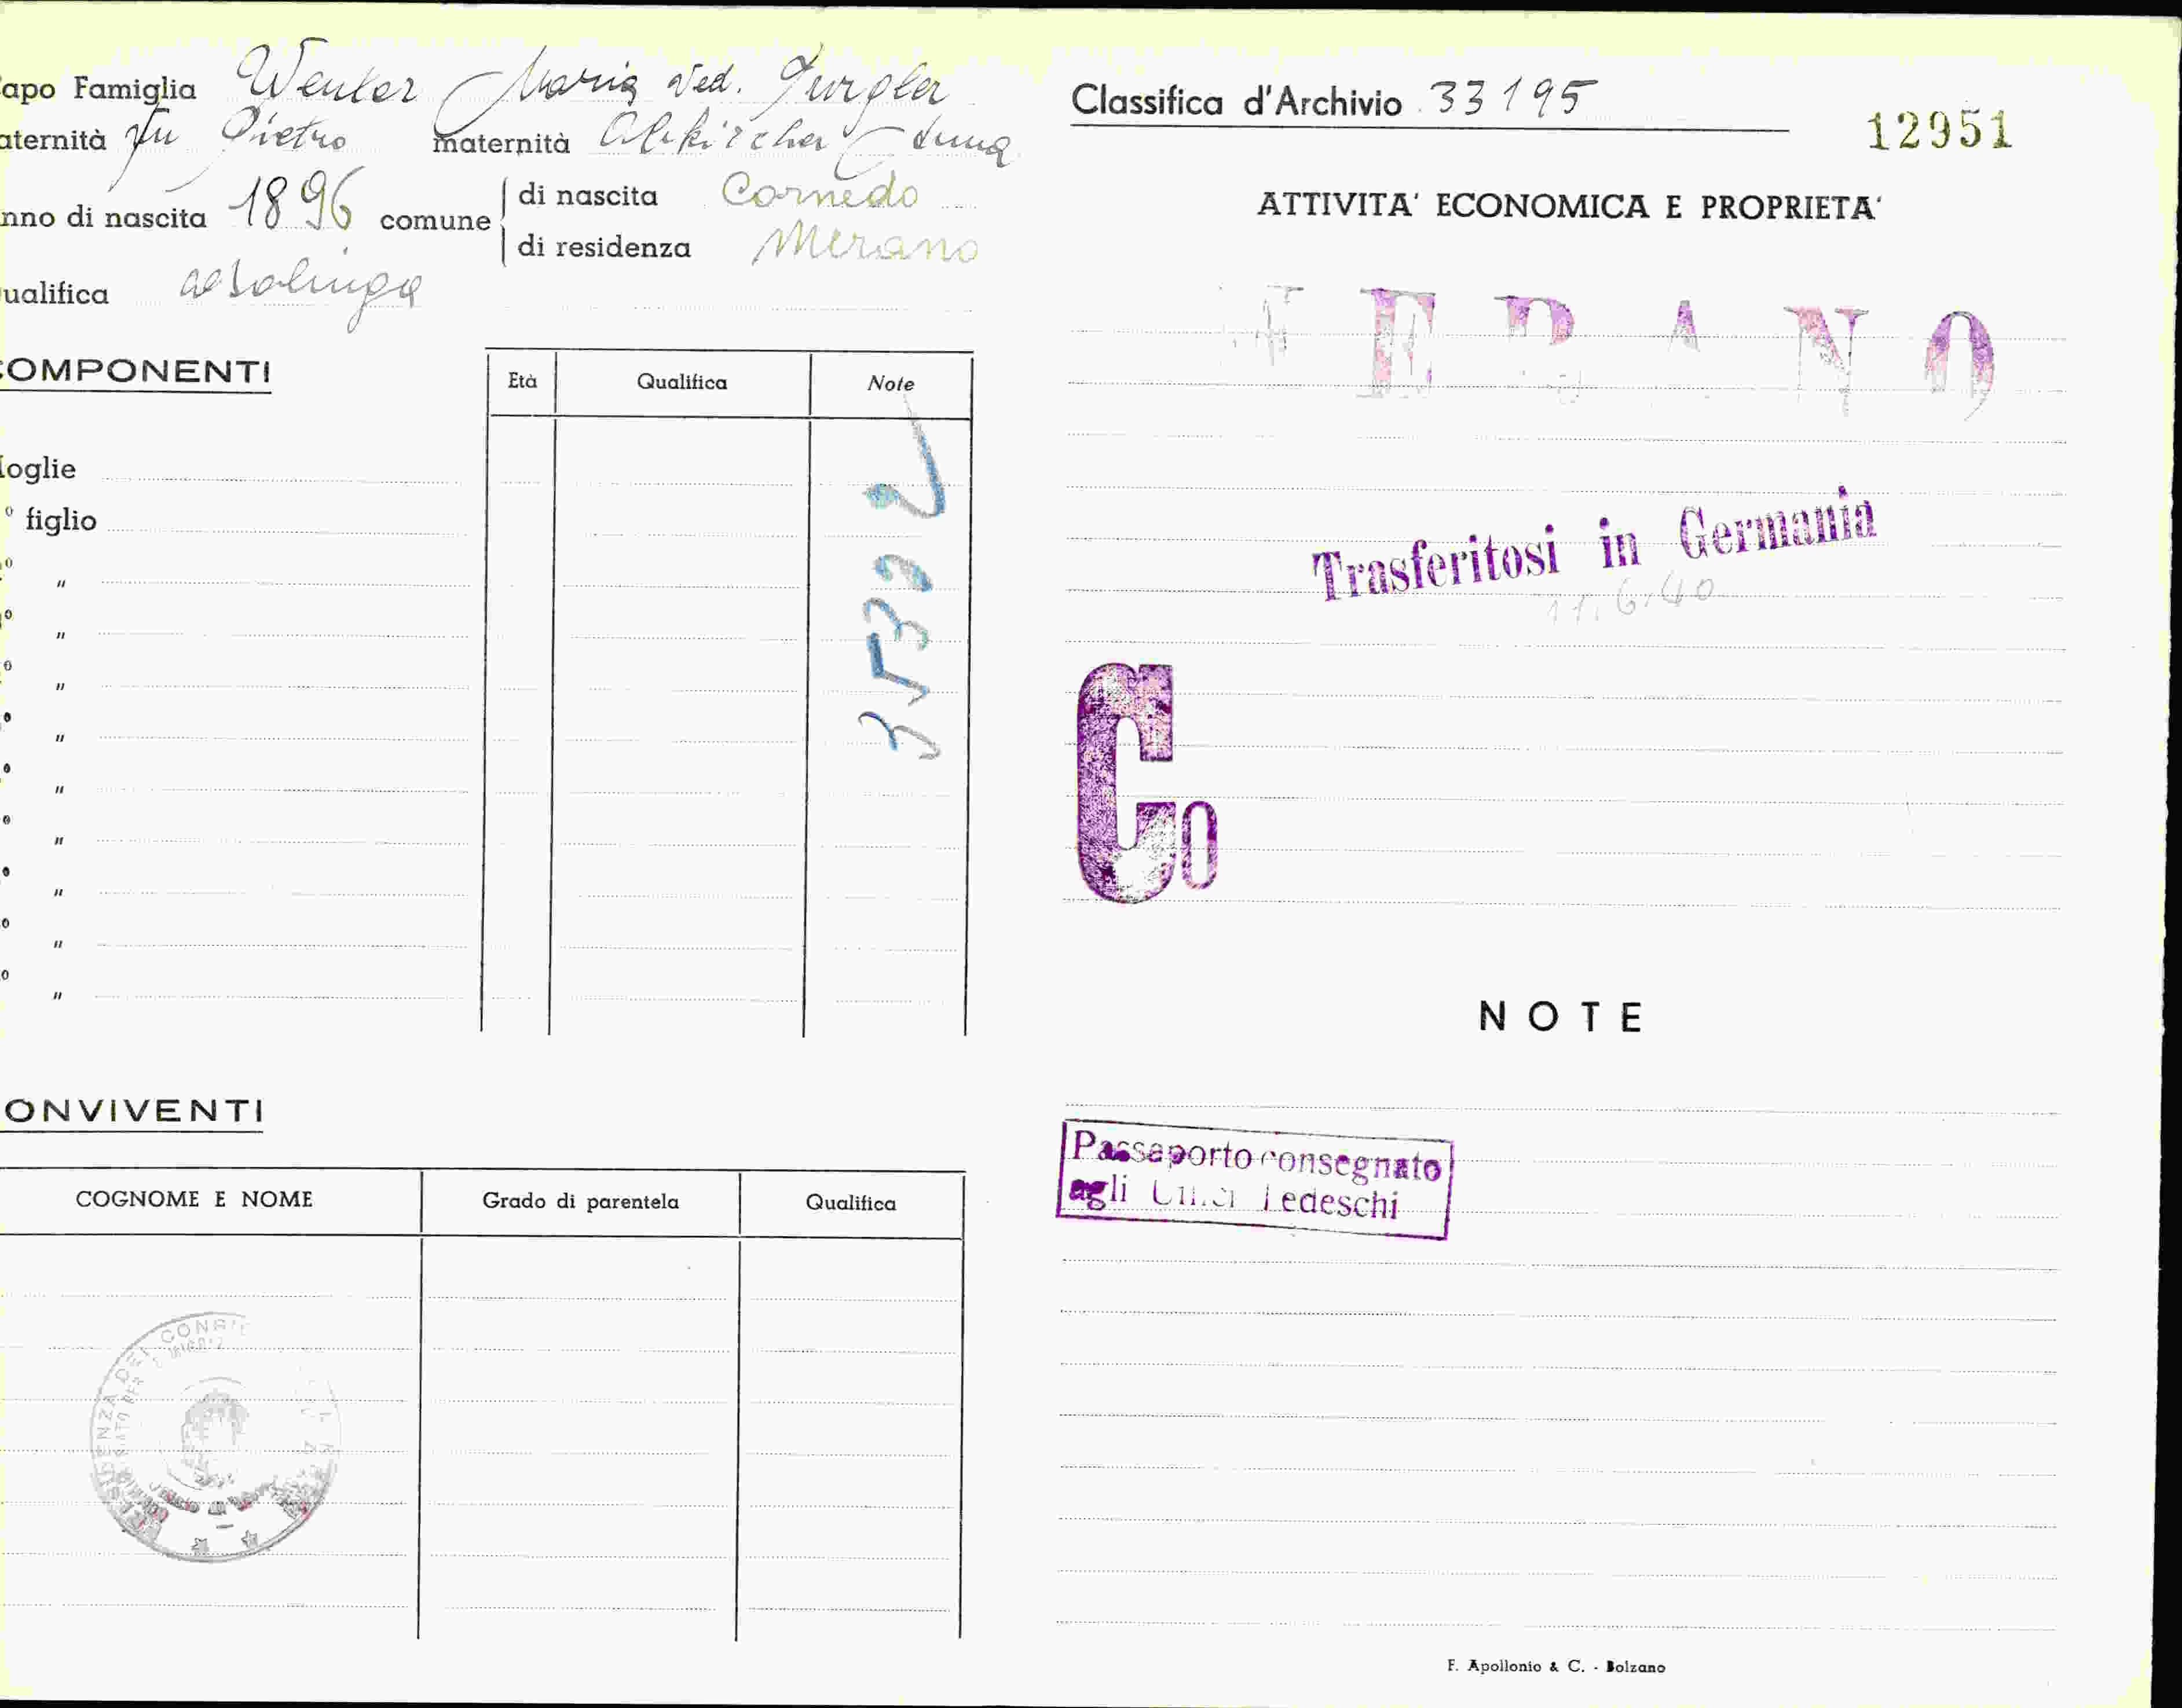 apo Famiglia Wenter Maria ved. Gurgler
aternità fu Pietro maternità Anna
nno di nascita 1896 comune di nascita Cornedo
di residenza Merano
ualifica casalinga
OMPONENTI
Età Qualifica Note
oglie
° figlio
o "
o "
o "
o "
o "
o "
o "
o "
o "
3539
ONVIVENTI
COGNOME E NOME Grado di parentela Qualifica
Classifica d'Archivio 33195
12951
ATTIVITA' ECONOMICA E PROPRIETA'
MERANO
Trasferitosi in Germania
11.6.40
Co
NOTE
Passaporto consegnato
agli Uffici Tedeschi
F. Apollonio & C. - Bolzano